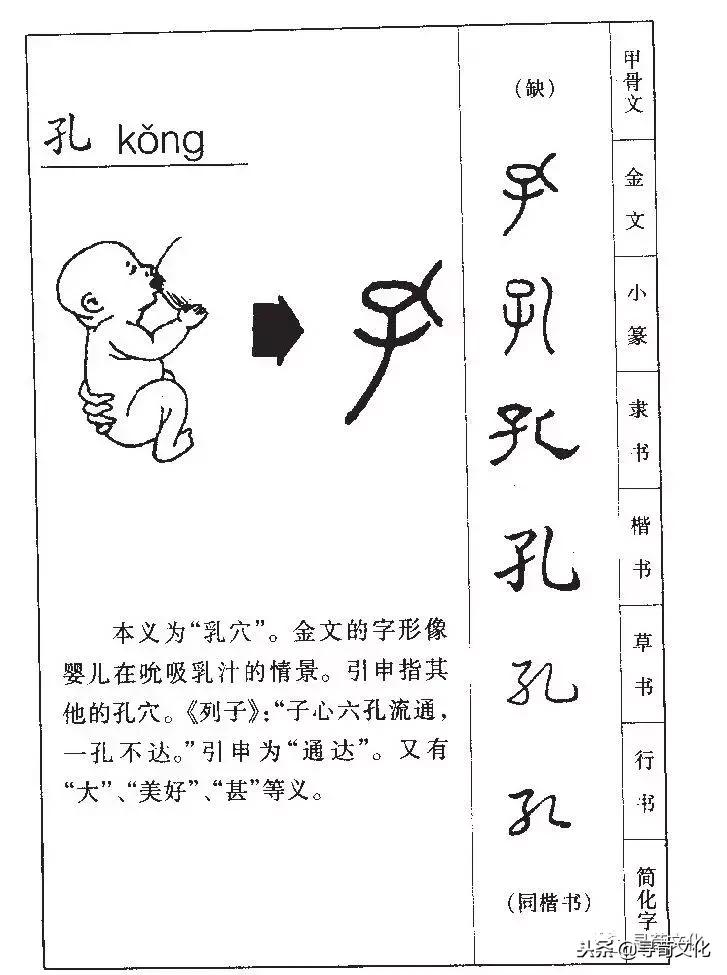 孔 kǒng
本义为“乳穴”。金文的字形像
婴儿在吮吸乳汁的情景。引申指其
他的孔穴。《列子》：“子心六孔流通，
一孔不达。”引申为“通达”。又有
“大”、“美好”、“甚”等义。
（缺）
孔
孔
孔
孔
孔
孔
（同楷书）
甲骨文
金文
小篆
隶书
楷书
草书
行书
简化字
头条@寻哥文化